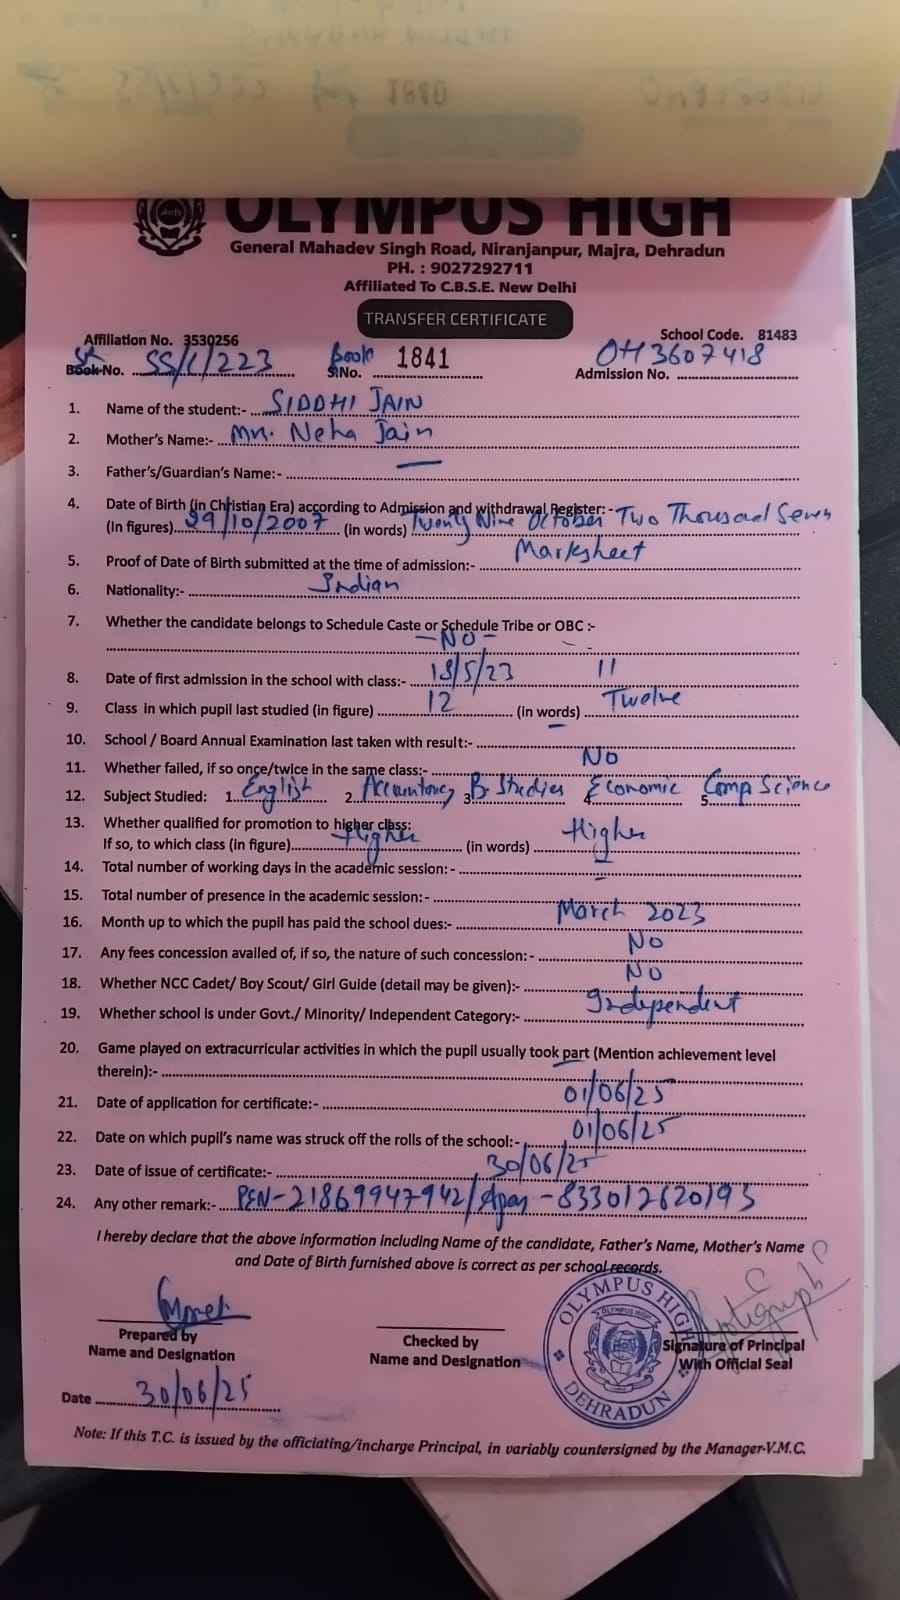 OLYMPUS HIGH
General Mahadev Singh Road, Niranjanpur, Majra, Dehradun
PH. : 9027292711
Affiliated To C.B.S.E. New Delhi
TRANSFER CERTIFICATE
Affiliation No. 3530256 School Code. 81483
Sr Book No. SS/1/223 Book S.No. 1841 Admission No. OH3607418
1. Name of the student:- SIDDHI JAIN
2. Mother's Name:- Mrs. Neha Jain
3. Father's/Guardian's Name:- —
4. Date of Birth (in Christian Era) according to Admission and withdrawal Register: -
(In figures) 29/10/2007 (in words) Twenty Nine October Two Thousad Seven
5. Proof of Date of Birth submitted at the time of admission:- Marksheet
6. Nationality:- Indian
7. Whether the candidate belongs to Schedule Caste or Schedule Tribe or OBC :-
—NO—
8. Date of first admission in the school with class:- 18/5/23 11
9. Class in which pupil last studied (in figure) 12 (in words) Twelve
10. School / Board Annual Examination last taken with result:- —
11. Whether failed, if so once/twice in the same class:- NO
12. Subject Studied: 1. English 2. Accountancy 3. B. Studies 4. Economic 5. Comp Science
13. Whether qualified for promotion to higher class:
If so, to which class (in figure) Higher (in words) Higher
14. Total number of working days in the academic session: - —
15. Total number of presence in the academic session:- —
16. Month up to which the pupil has paid the school dues:- March 2023
17. Any fees concession availed of, if so, the nature of such concession: - No
18. Whether NCC Cadet/ Boy Scout/ Girl Guide (detail may be given):- No
19. Whether school is under Govt./ Minority/ Independent Category:- Independent
20. Game played on extracurricular activities in which the pupil usually took part (Mention achievement level
therein):- —
21. Date of application for certificate:- 01/06/25
22. Date on which pupil's name was struck off the rolls of the school:- 01/06/25
23. Date of issue of certificate:- 30/06/25
24. Any other remark:- PEN-21869947942/Apar-833012620193
I hereby declare that the above information including Name of the candidate, Father's Name, Mother's Name
and Date of Birth furnished above is correct as per school records.
OLYMPUS HIGH
DEHRADUN
Prepared by
Name and Designation
Checked by
Name and Designation
Signature of Principal
With Official Seal
Date 30/06/25
Note: If this T.C. is issued by the officiating/incharge Principal, in variably countersigned by the Manager-V.M.C.